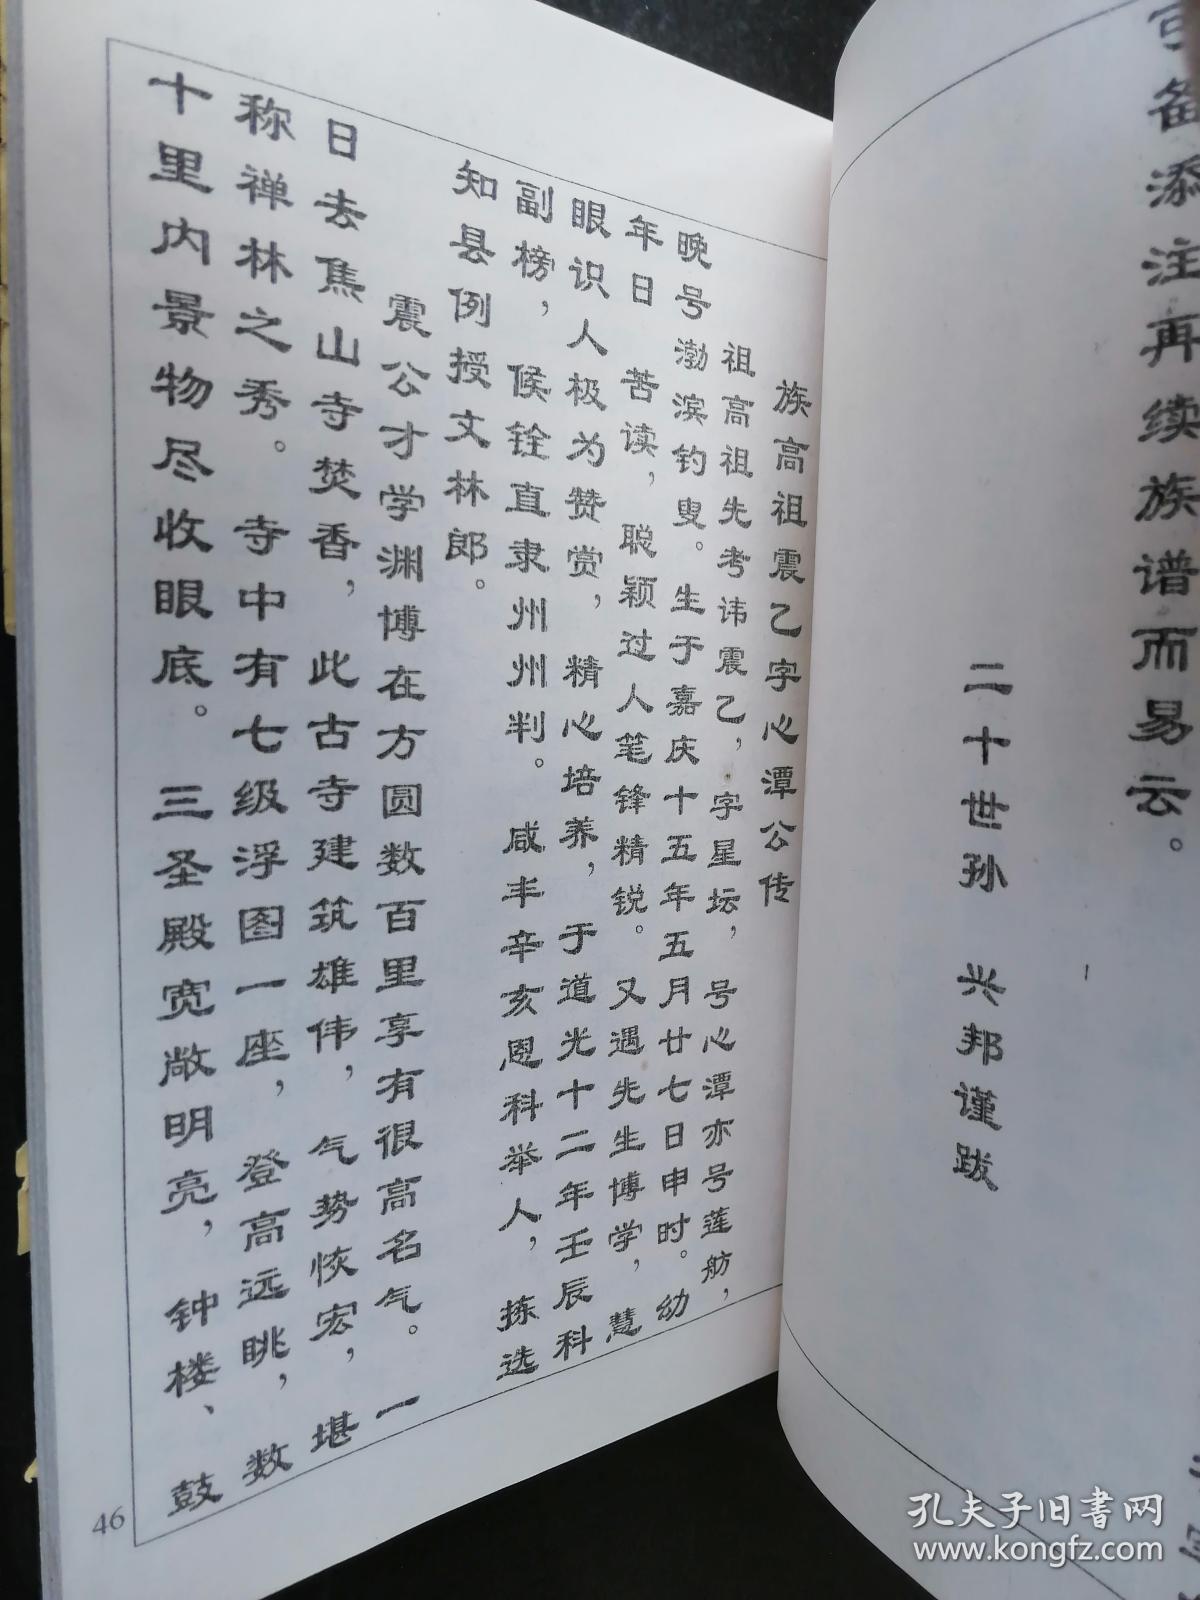 备添注再续族谱而易云。
二十世孙 兴邦谨跋
族高祖震乙字心潭公传
祖高祖先考讳震乙，字星坛，号心潭亦号莲舫，
晚号渤滨钓叟。生于嘉庆十五年五月廿七日申时。幼
年日 苦读，聪颖过人笔锋精锐。又遇先生博学，慧
眼识人极为赞赏，精心培养，于道光十二年壬辰科
副榜，候铨直隶州州判。咸丰辛亥恩科举人，拣选
知县例授文林郎。
震公才学渊博在方圆数百里享有很高名气。一
日去焦山寺焚香，此古寺建筑雄伟，气势恢宏，堪
称禅林之秀。寺中有七级浮图一座，登高远眺，数
十里内景物尽收眼底。三圣殿宽敞明亮，钟楼、鼓
46
孔夫子旧书网
www.kongfz.com